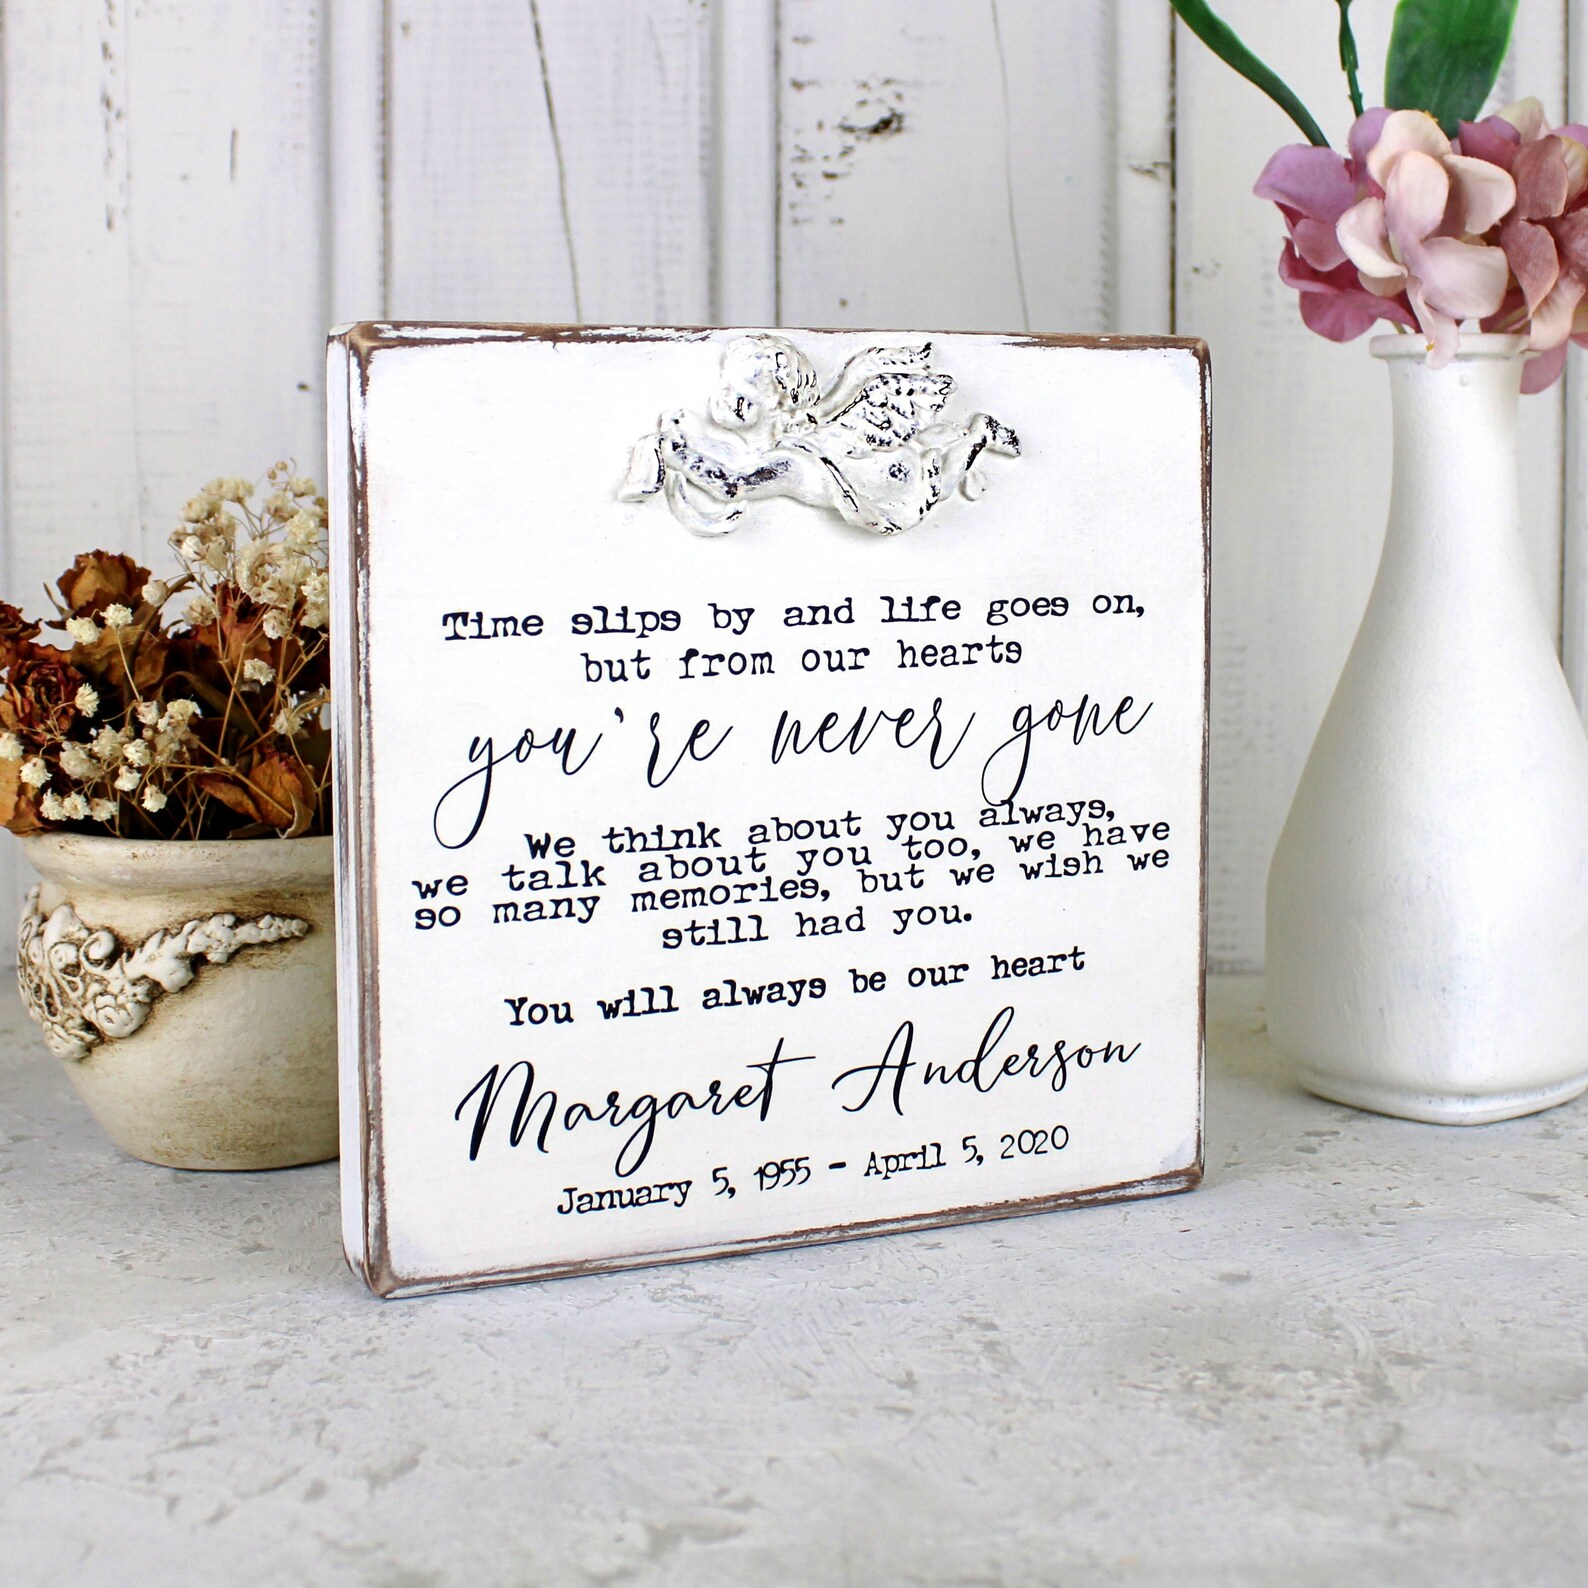 Time slips by and life goes on,
but from our hearts
you're never gone
We think about you always,
we talk about you too, we have
so many memories, but we wish we
still had you.
You will always be our heart
Margaret Anderson
January 5, 1955 - April 5, 2020